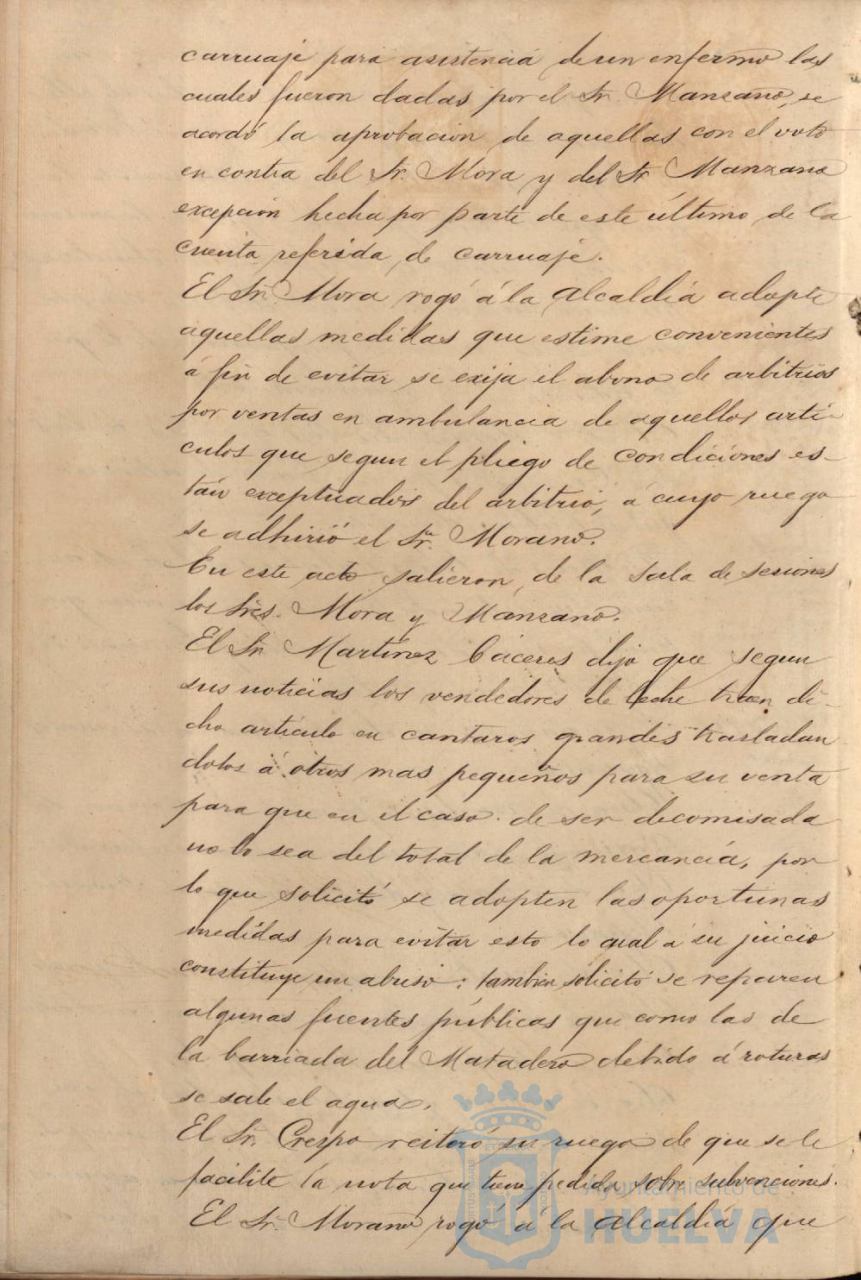 carruaje para asistencia de un enfermo las
cuales fueron dadas por el Sr. Manzano, se
acordó la aprobacion de aquellas con el voto
en contra del Sr. Mora y del Sr Manzano
excepcion hecha por parte de este último de la
cuenta referida de carruaje.
El Sr. Mora rogó á la Alcaldía adopte
aquellas medidas que estime convenientes
á fin de evitar se exija el abono de arbitrios
por ventas en ambulancia de aquellos arti-
culos que segun el pliego de condiciones es-
tán exceptuados del arbitrio, á cuyo ruego
se adhirió el Sr. Morano.
En este acto salieron de la sala de sesiones
los Sres. Mora y Manzano.
El Sr Martinez Cáceres dijo que segun
sus noticias los vendedores de leche traen di-
cho articulo en cantaros grandes trasladan
dolos á otros mas pequeños para su venta
para que en el caso de ser decomisada
no lo sea del total de la mercancía, por
lo que solicitó se adopten las oportunas
medidas para evitar esto lo cual á su juicio
constituye un abuso: tambien solicitó se reparen
algunas fuentes públicas que como las de
la barriada del Matadero debido á roturas
se sale el agua.
El Sr. Crespo reiteró su ruego de que se le
facilite la nota que tiene pedida sobre subvenciones.
El Sr. Morano rogó á la Alcaldía que
Ayuntamiento de
HUELVA